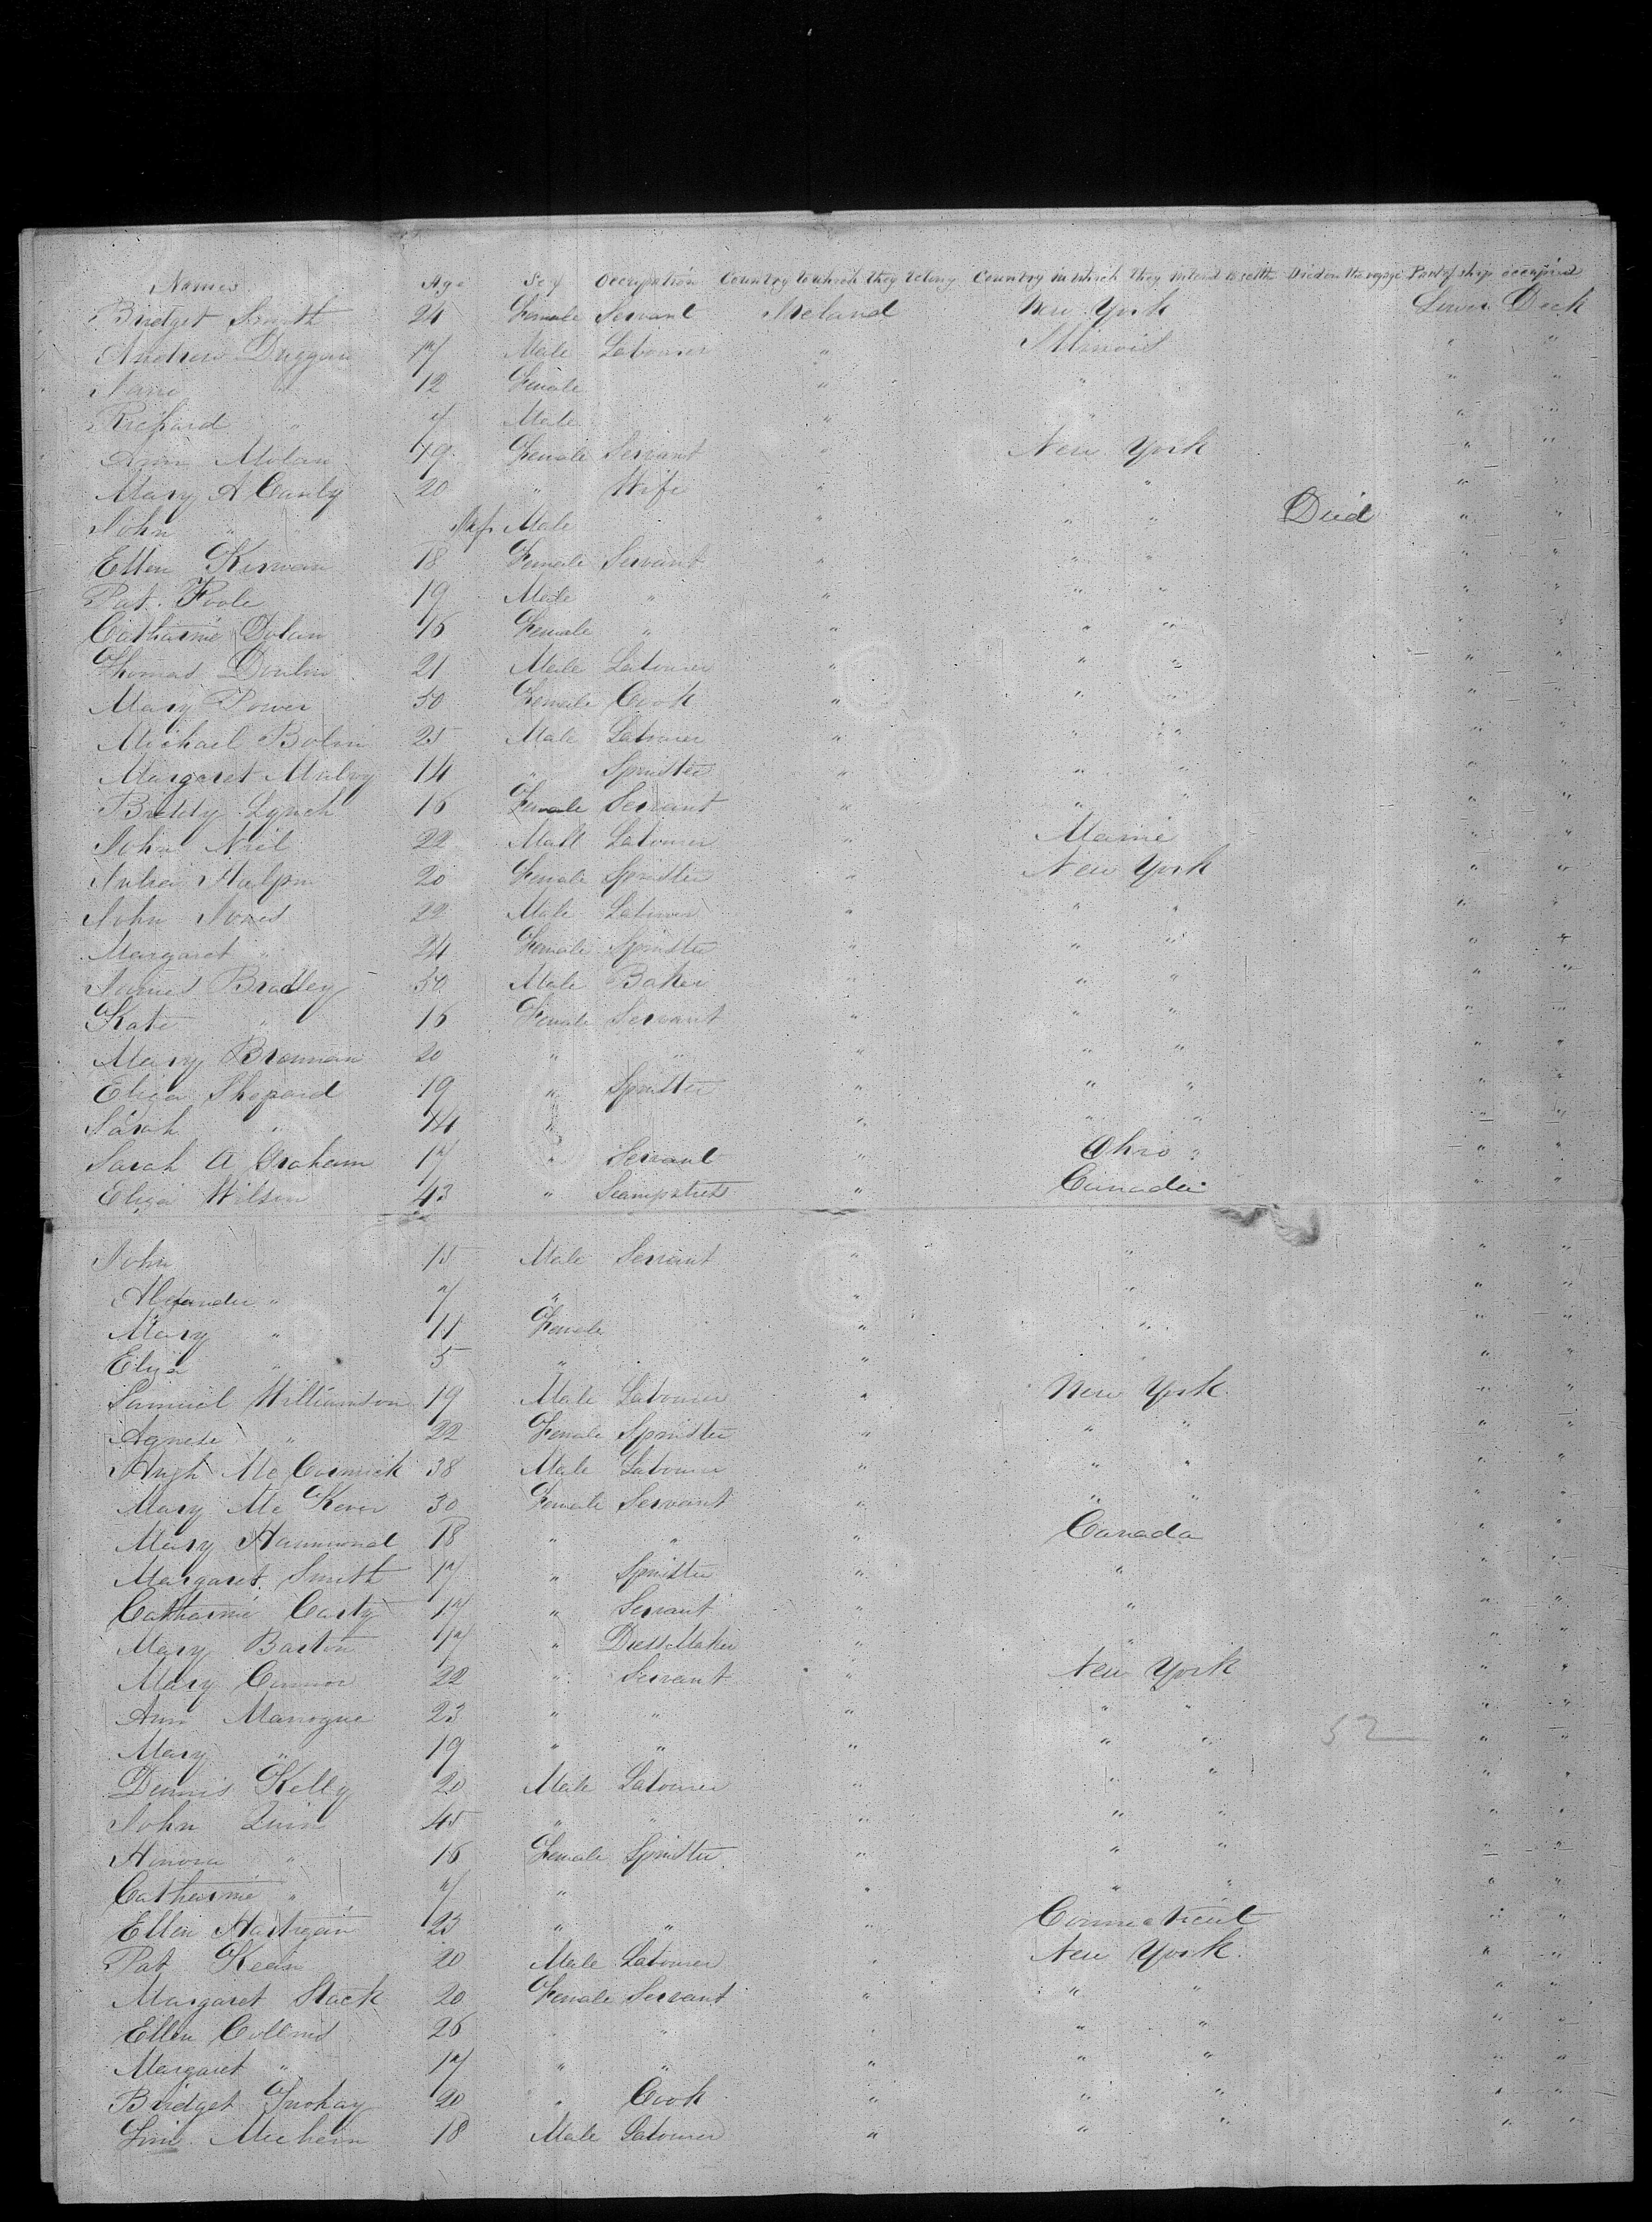 Names Age Sex Occupation Country to which they belong Country in which they intend to settle Died on the voyage Part of ship occupied
Bridget Smith 24 Female Servant Ireland New York Lower Deck
Andrew Duggan 17 Male Labourer " Illinois " "
Jane " 12 Female " " " "
Richard " 7 Male " " " "
Ann Molan 19 Female Servant " New York " "
Mary A Canty 20 " Wife " " " " "
John " " Inf Male " " " Died " "
Ellen Kirwan 18 Female Servant " " " " "
Pat. Foole 19 Male " " " " " "
Catharine Dolan 16 Female " " " " " "
Thomas 21 Male Labourer " " " " "
Mary Power 50 Female Cook " " " " "
Michael Bolin 25 Male Labourer " " " " "
Margaret Mulroy 14 " Spinster " " " " "
Biddy Lynch 16 Female Servant " " " " "
John Neil 22 Male Labourer " Maine " "
Julia Halpin 20 Female Spinster " New York " "
John Jones 22 Male Labourer " " " " "
Margaret " 24 Female Spinster " " " " "
James Bradley 50 Male Baker " " " " "
Kate " 16 Female Servant " " " " "
Mary Brennan 20 " " " " " " "
Eliza Shepard 19 " Spinster " " " " "
Sarah " 14 " " " " " "
Sarah A Graham 17 " Servant " Ohio " " "
Eliza Wilson 43 " Seampstress " Canada " "
John 15 Male Servant " " " "
Alexander " 7 " " " " "
Mary " 11 Female " " " "
Eliza " 5 " " " " "
Samuel Williamson 19 Male Labourer " New York " "
Agnese " 22 Female Spinster " " " " "
Hugh Mc Cormick 38 Male Labourer " " " " "
Mary Mc Kever 30 Female Servant " " " " "
Mary Hammond 18 " " " Canada " "
Margaret Smith 17 " Spinster " " " "
Catharine Carty 17 " Servant " " " "
Mary Barton 17 " Dress Maker " " " "
Mary Connor 22 " Servant " New York " "
Ann Manogue 23 " " " " " " "
Mary " 19 " " " " " 52 " "
Dennis Kelly 20 Male Labourer " " " " "
John Quin 45 " " " " " " "
Honora " 16 Female Spinster " " " " "
Catharine " 7 " " " " " "
Ellen Hartregan 23 " " " Connecticut " "
Pat Keain 20 Male Labourer " New York " "
Margaret Stack 20 Female Servant " " " " "
Ellen Collins 26 " " " " " " "
Margaret " 17 " " " " " " "
Bridget 20 " Cook " " " " "
Jim Mechein 18 Male Labourer " " " " "